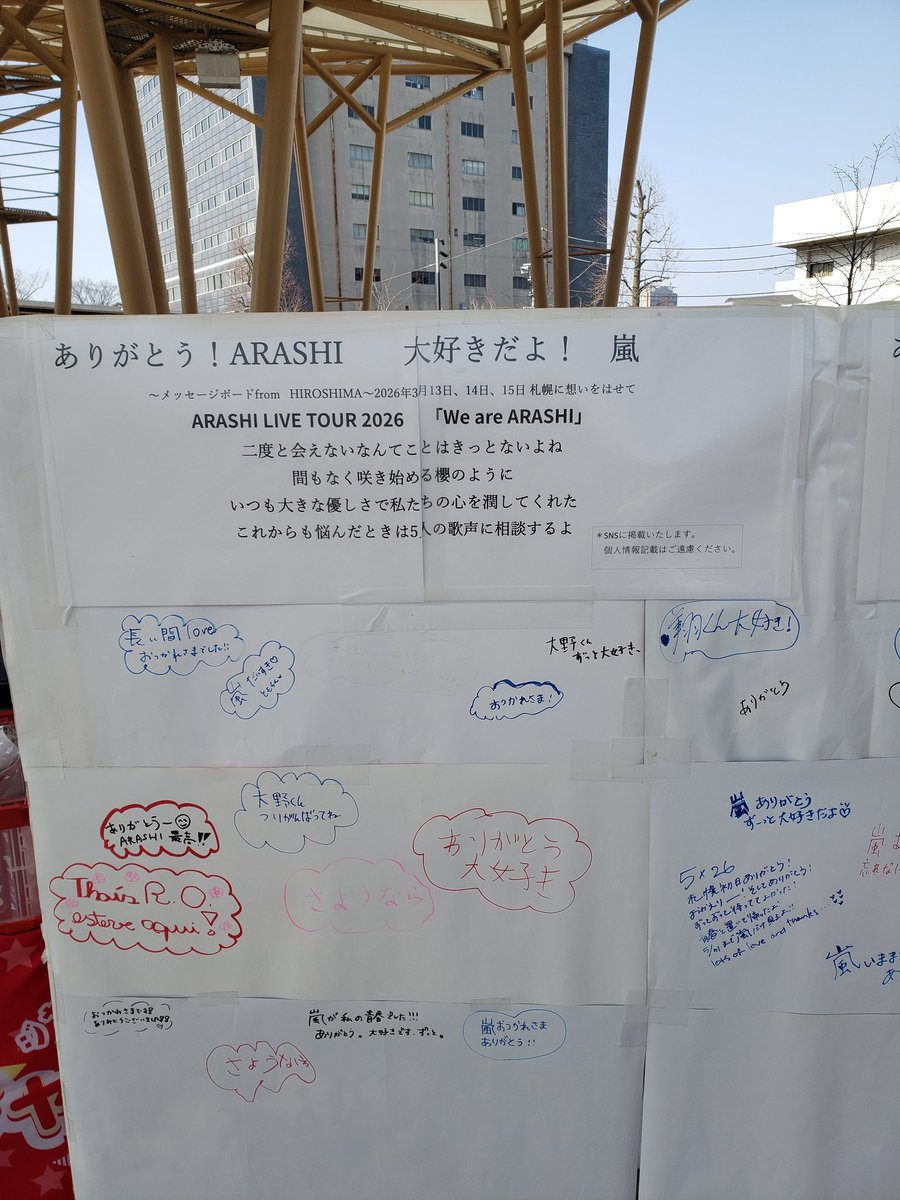 ありがとう！ARASHI　　大好きだよ！　嵐
～メッセージボードfrom　HIROSHIMA～2026年3月13日、14日、15日 札幌に想いをはせて
ARASHI LIVE TOUR 2026　「We are ARASHI」
二度と会えないなんてことはきっとないよね
間もなく咲き始める櫻のように
いつも大きな優しさで私たちの心を潤してくれた
これからも悩んだときは5人の歌声に相談するよ
＊SNSに掲載いたします。
個人情報記載はご遠慮ください。
長い間love
おつかれさまでした!!
嵐だいすき♡
大野くん
ずっと大好き、
翔くん大好き!
おつかれさま!
ありがとう
ありがとうー
ARASHI 最高!!
大野くん
つりがんばってね
ありがとう
大好き
Thaís R.O.
esteve aqui!
さようなら
嵐ありがとう
ずーっと大好きだよ♡
5×26
札幌初日ありがとう!
lots of love and thanks...
嵐
忘れな
嵐いまま
おつかれさまです
ありがとうございます
嵐が私の青春でした!!!
ありがとう。大好きです。ずっと。
嵐おつかれさま
ありがとう!!
さようなら